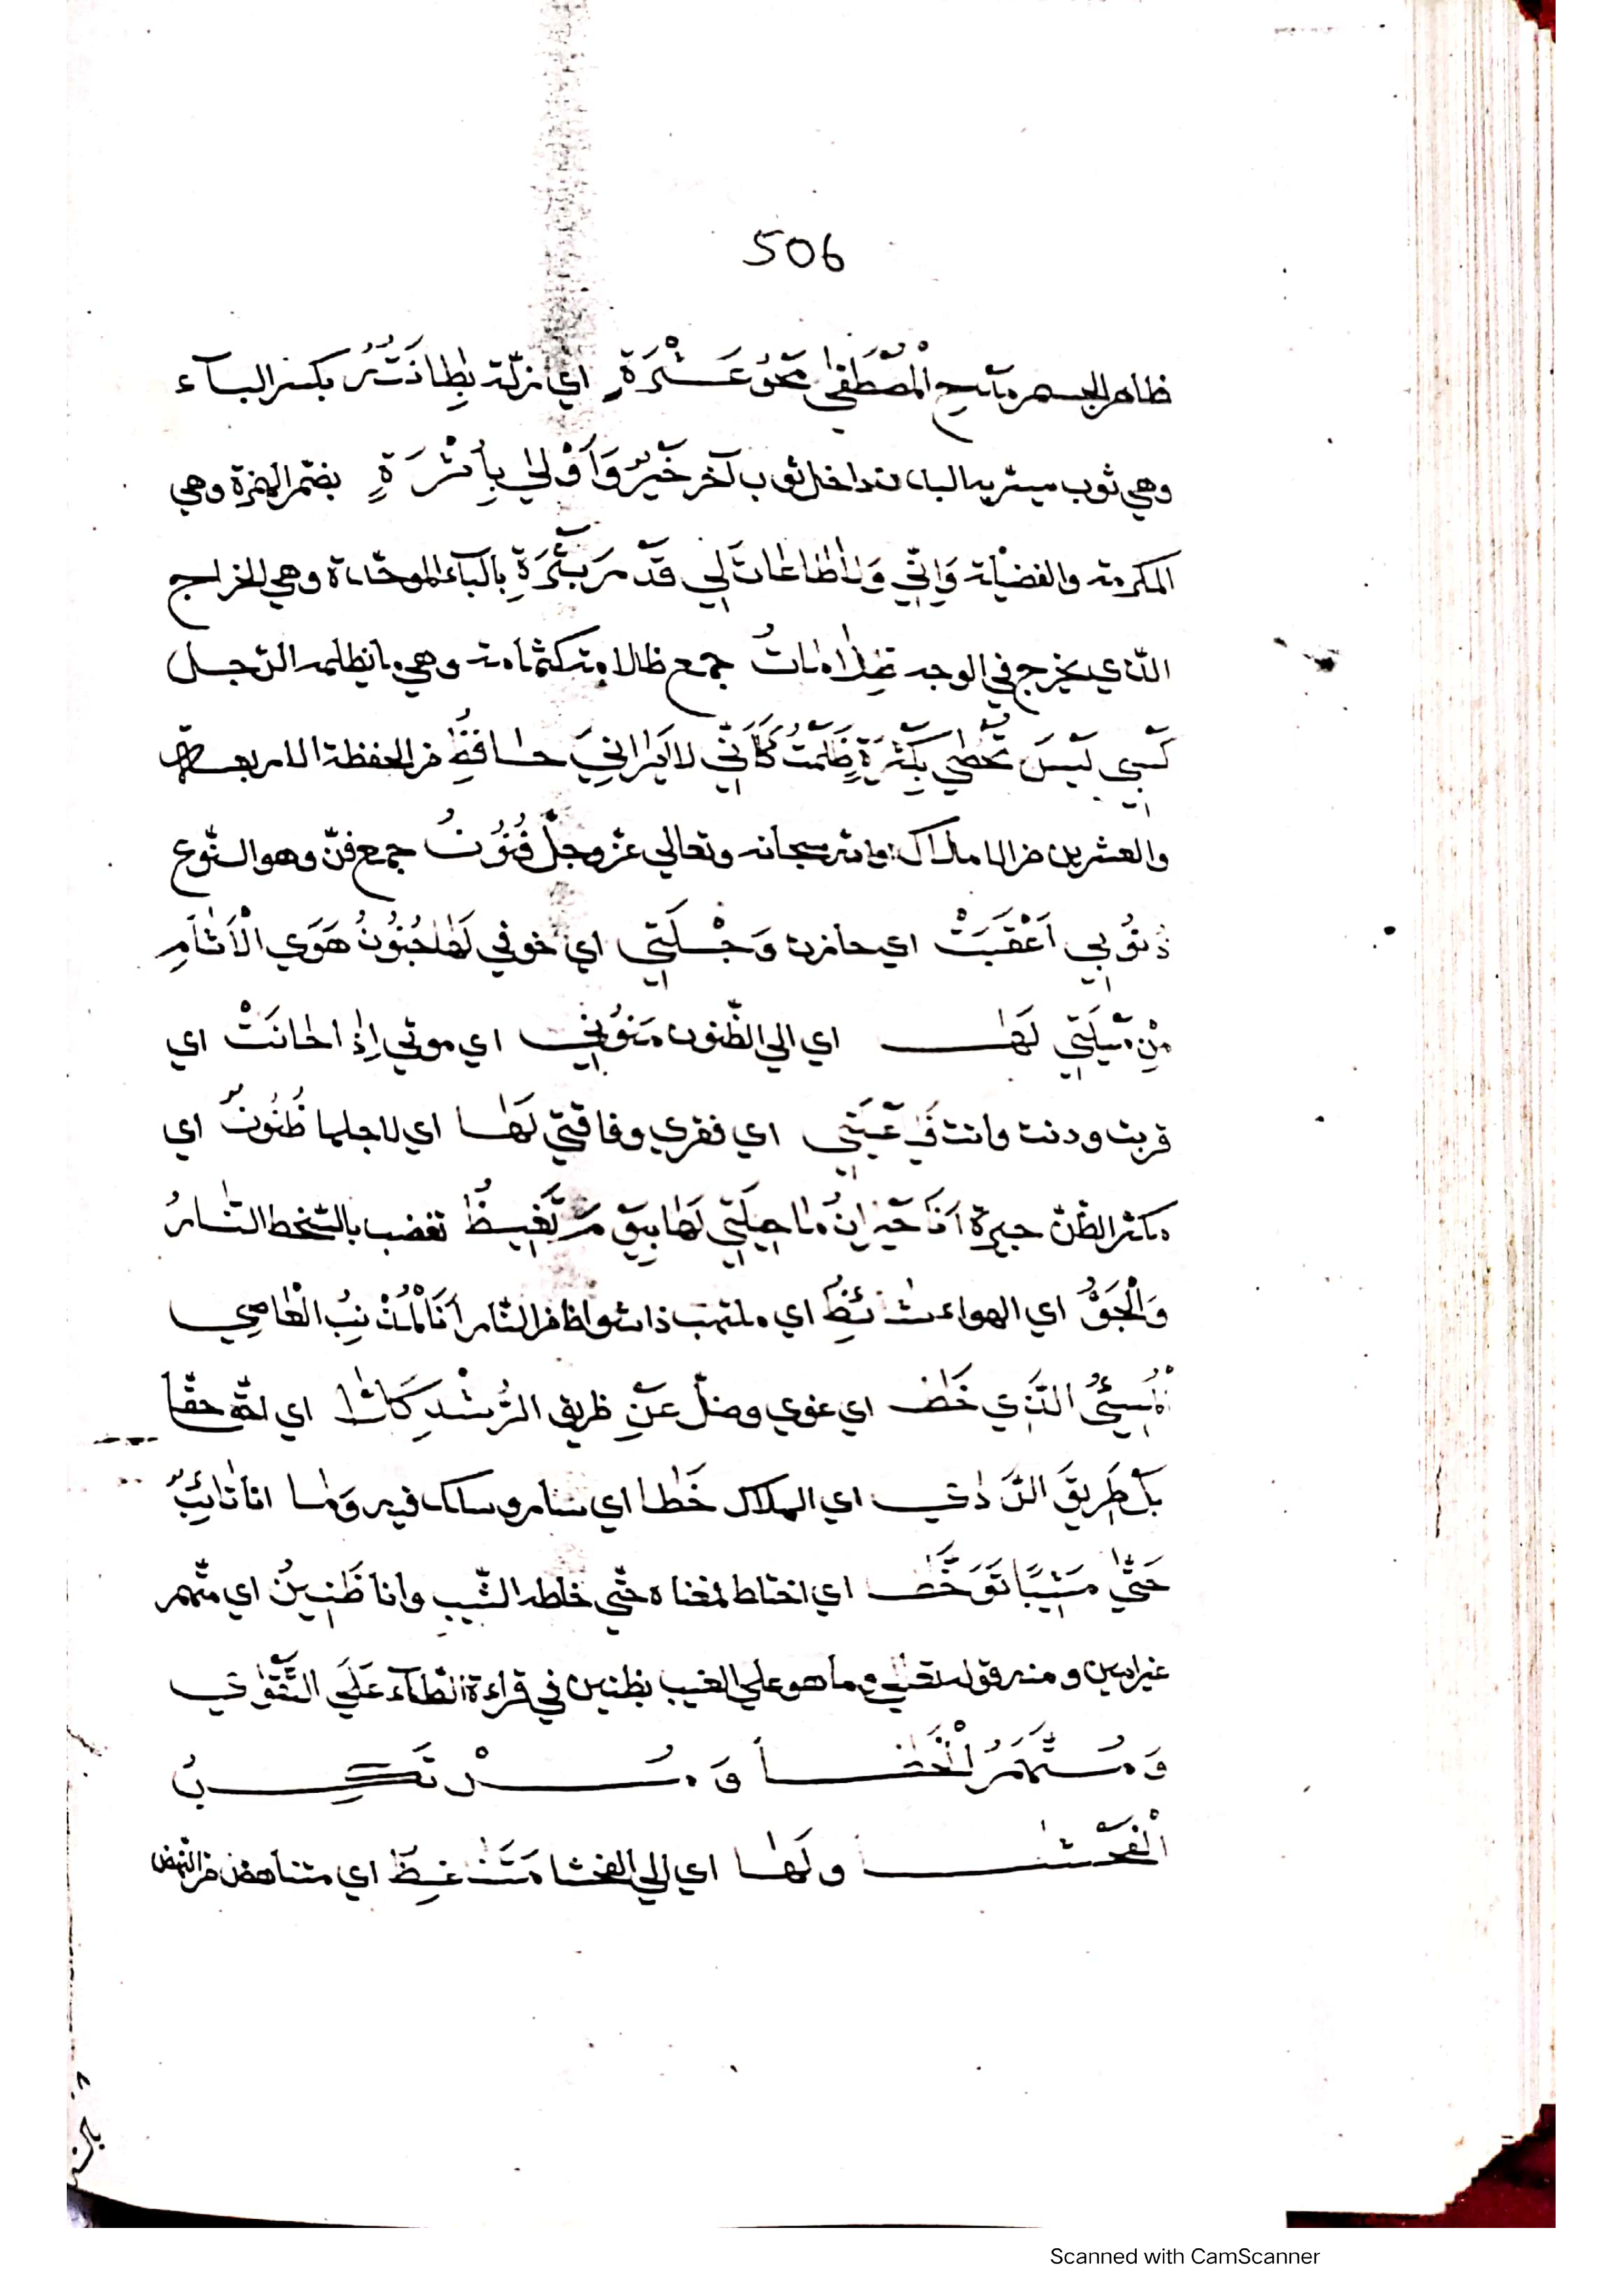 506
ظاهر الجسم مَدْحِ الْمُصْطَفٰى مَحْوُ عَشْرَةٍ اي زلّة بِطَانَتُهُ بكسر البآء
وهي ثوب داخل ثوب آخر خَيْرٌ وَأَوْلٰي بِأُثْرَةٍ بضمّ الهمزة وهي
المكرمة والفضيلة وَإِنِّي وَلَا طَاعَاتَ لِي قَدْ بِثَرَةِ بالبآء الموحّدة وهي الخراج
الّذي يخرج في الوجه ظِلَامَاتُ جمع ظلامة كثمامة وهي ما يظلمه الرّجل
كَسْبِي لَيْسَ تُحْصٰي بِكَثْرَةٍ ظَلَمْتُ كَأَنِّي لَا يَرَانِيَ حَافِظُ من الحفظة الاربعة
والعشرين من الاملاك او الله سبحانه وتعالي عزّ وجلّ فُنُوْنُ جمع فنّ وهو النّوع
ذُنُوْبِي اَعْقَبَتْ اي حازت وَجْلَتِي اي خوفي لَهَا جُنُوْنُ هَوَي الْأَثَامِ
مِنْ مَيْلَتِي لَهَا اي الي الظّنون مَنُوْنِي اي موتي إِذَا حَانَتْ اي
قربت ودنت وانت فَفِي عَيْلَتِي اي فقري وفاقتي لَهَا اي لاجلها ظُنُوْنٌ اي
مكثر الظّنّ حيرة اَنَا حَيْرَانُ مَا حِيْلَتِي لَهَا بِيَوْمَ تَغِيْظُ تغضب بالسّخط النّارُ
وَالْجَوُّ اي الهواء شَائِظُ اي ملتهب ذا شواظ من النّار أَنَا الْمُذْنِبُ الْعَاصِي
الْمُسِيْئُ الَّذِي خَطَا اي غوي وضلّ عَنْ طريق الرُّشْدِ كَلَّا اي حقّا
بَلْ طَرِيْقَ الرَّدٰي اي الهلاك خَطَا اي سار وسلك فيه وَمَا انا تَائِبٌ
حَتّٰي مَشِيْبًا تَوَخَّطَا اي اختلط لمعناه حتّي خلطه الشّيب وانا ظَنِيْنٌ اي متّهم
غير امين ومنه قوله تعالي وما هو علي الغيب بظنين في قراءة الظآء عَلَي التَّقْوٰي
وَمُسْتَمِرُ الْخَطَا وَمُرْتَكِبُ
الْفَحْشَا ولَهَا اي الي الفحشا مَتَنَاهِظُ اي متناهض من النهض
Scanned with CamScanner